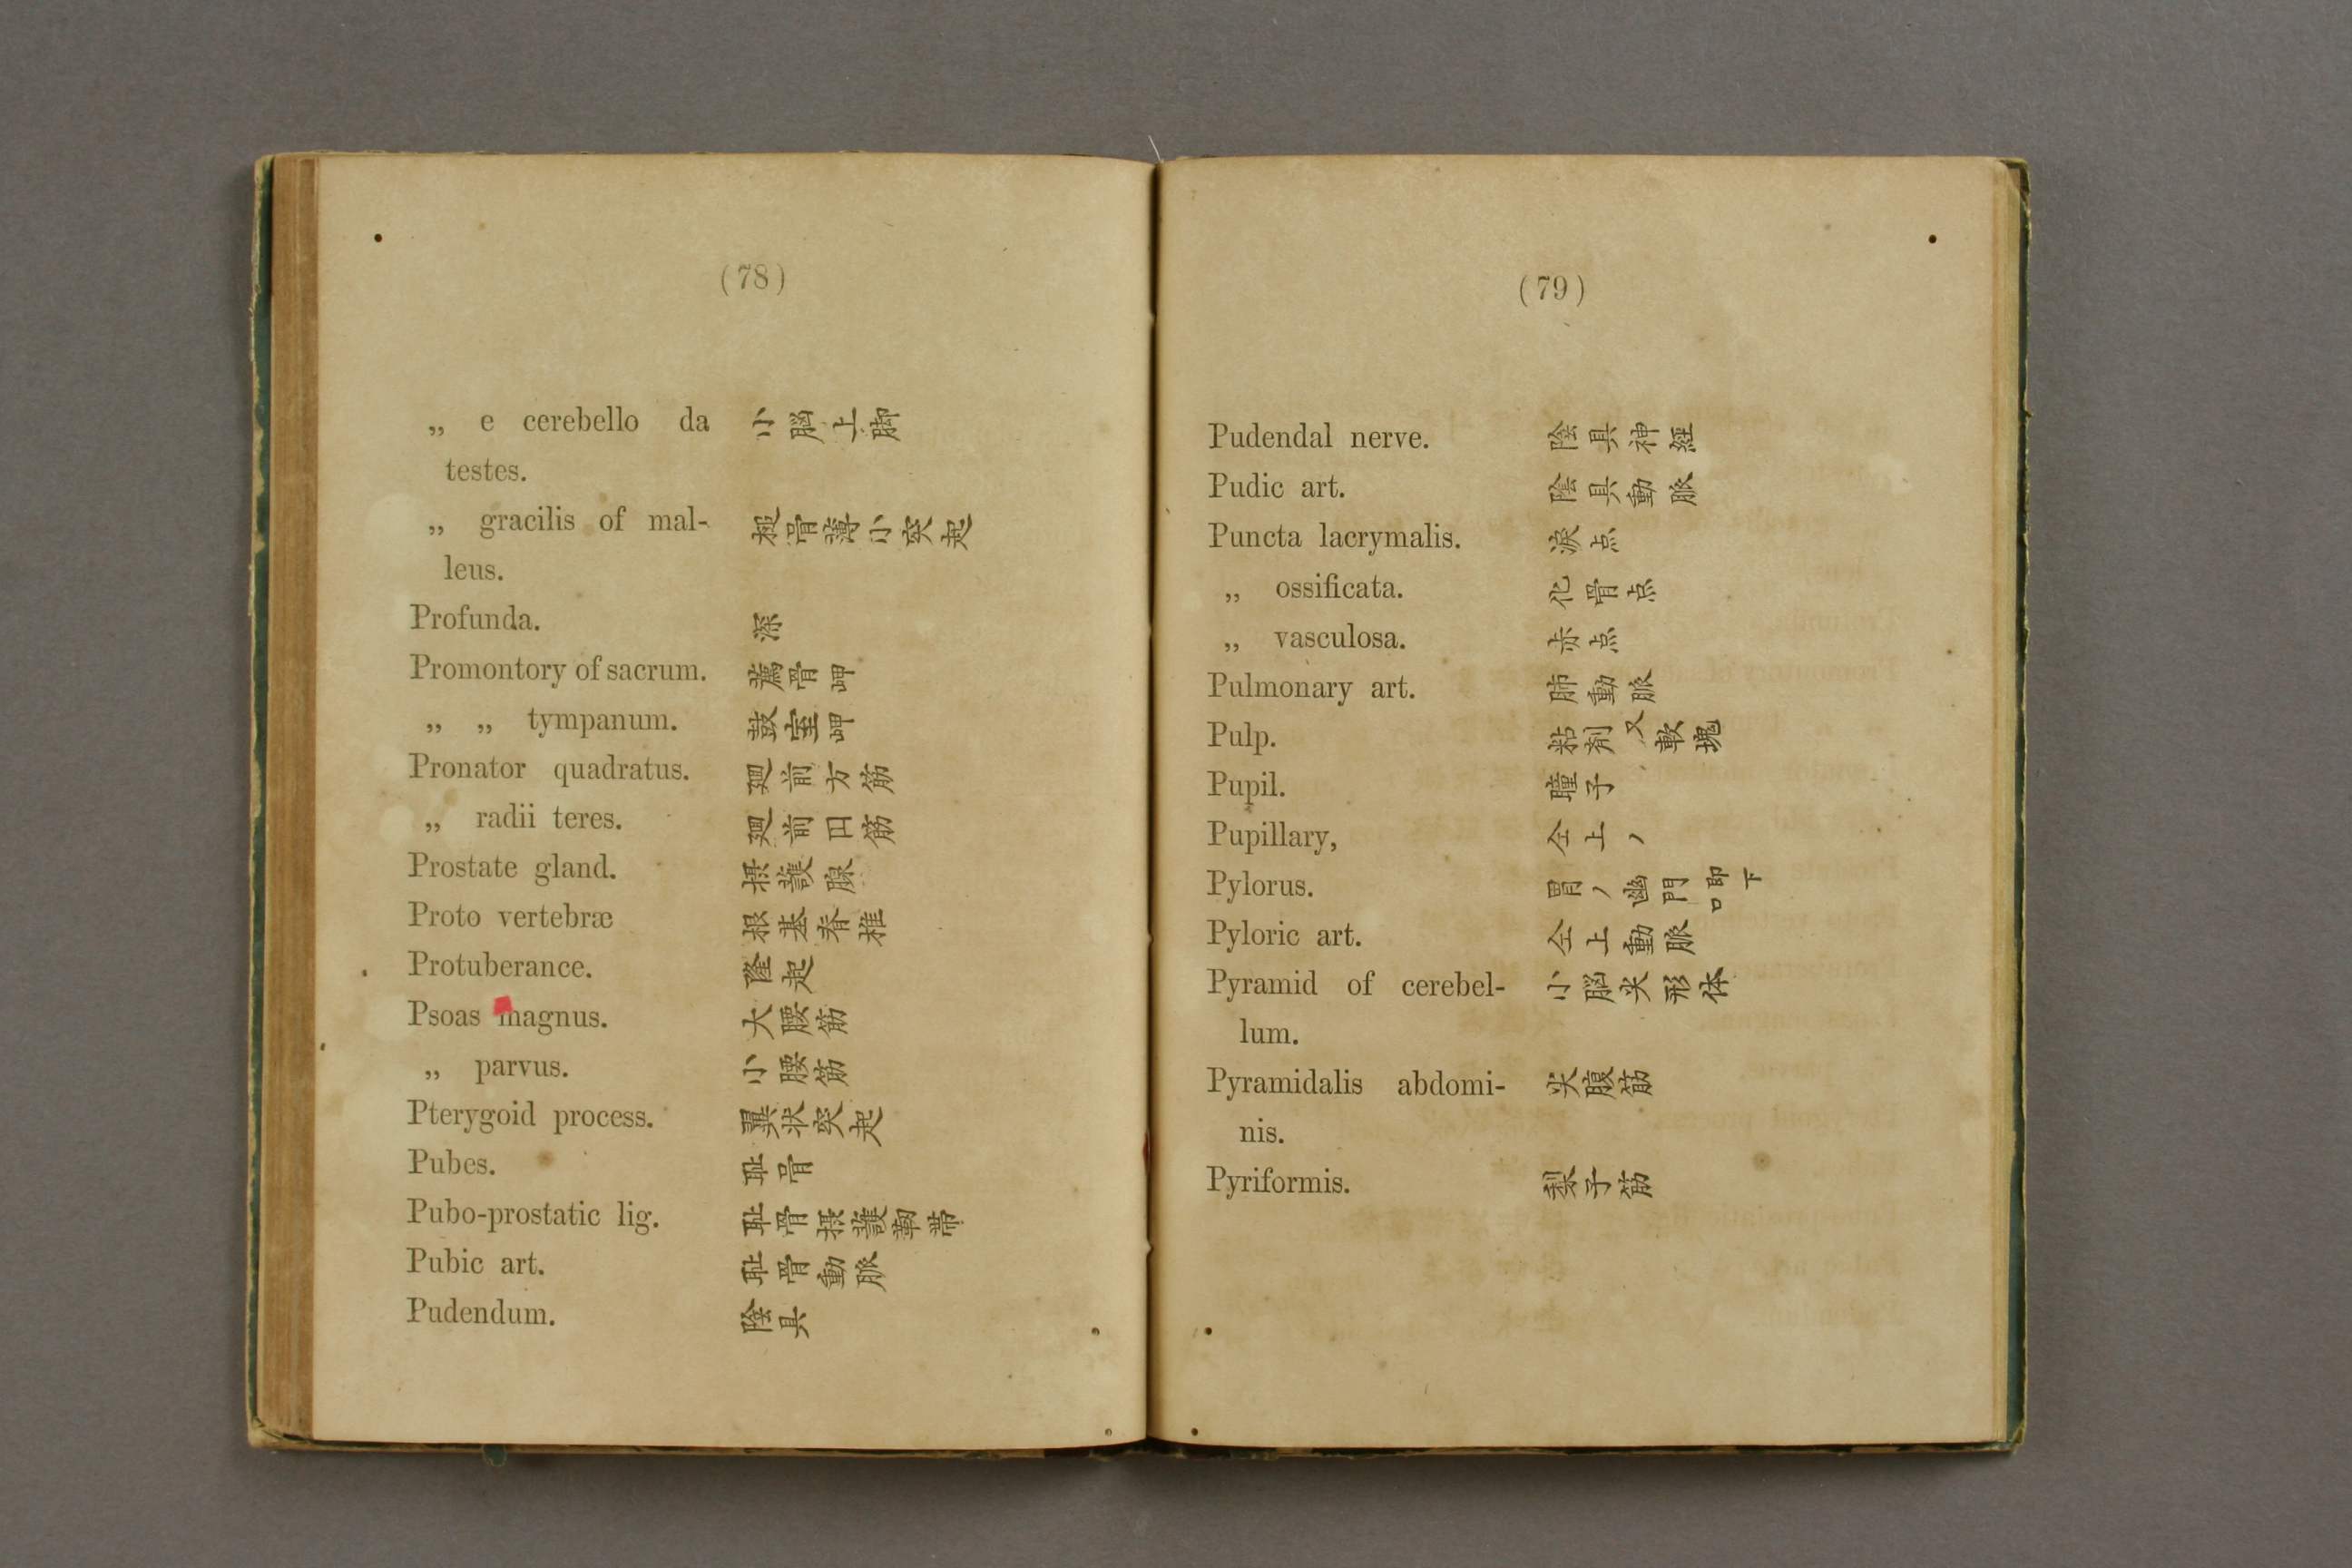 (78)
„ e cerebello da 小脳上脚
testes.
„ gracilis of mal- 槌骨薄小突起
leus.
Profunda. 深
Promontory of sacrum. 薦骨岬
„ „ tympanum. 鼓室岬
Pronator quadratus. 廻前方筋
„ radii teres. 廻前円筋
Prostate gland. 摂護腺
Proto vertebræ 根基脊椎
Protuberance. 隆起
Psoas magnus. 大腰筋
„ parvus. 小腰筋
Pterygoid process. 翼状突起
Pubes. 耻骨
Pubo-prostatic lig. 耻骨摂護靭帯
Pubic art. 耻骨動脈
Pudendum. 陰具
(79)
Pudendal nerve. 陰具神經
Pudic art. 陰具動脈
Puncta lacrymalis. 涙点
„ ossificata. 化骨点
„ vasculosa. 赤点
Pulmonary art. 肺動脈
Pulp. 粘剤又軟塊
Pupil. 瞳子
Pupillary, 仝上ノ
Pylorus. 胃ノ幽門即下口
Pyloric art. 仝上動脈
Pyramid of cerebel- 小脳尖形体
lum.
Pyramidalis abdomi- 尖腹筋
nis.
Pyriformis. 梨子筋